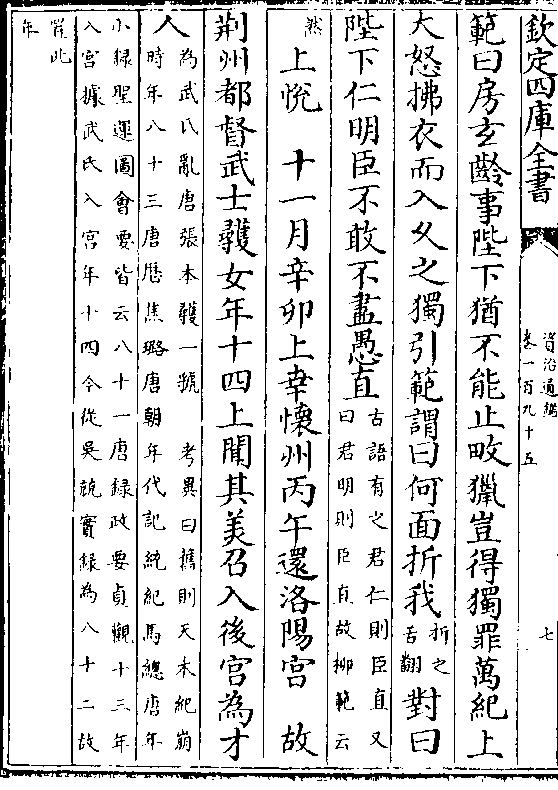 欽定四庫全書
資治通鑑
卷一百九十五
七
範曰房玄齡事陛下猶不能止畋獵豈得獨罪萬紀上
大怒拂衣而入久之獨引範謂曰何面折我
折之
舌翻
對曰
陛下仁明臣不敢不盡愚直
古語有之君仁則臣直又
曰君明則臣直故柳範云
然
上悅　十一月辛卯上幸懷州丙午還洛陽宮　故
荆州都督武士彠女年十四上聞其美召入後宮為才
人
為武氏亂唐張本彠一虢　考異曰舊則天本紀崩
時年八十三唐歴焦璐唐朝年代記統紀馬總唐年
小録聖運圖會要皆云八十一唐録政要貞觀十三年
入宮據武氏入宮年十四今從吳兢實録為八十二故
置此
年